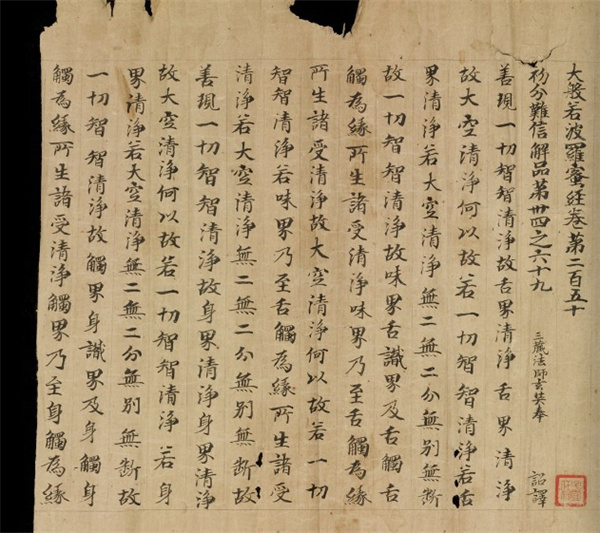 大般若波羅蜜経卷第二百五十
初分難信解品第卅四之六十九 三藏法師玄奘奉 詔譯
善現一切智智清淨故舌界清淨舌界清淨
故大空清淨何以故若一切智智清淨若舌
界清淨若大空清淨無二無二分無別無斷
故一切智智清淨故味界舌識界及舌觸舌
觸為緣所生諸受清淨味界乃至舌觸為緣
所生諸受清淨故大空清淨何以故若一切
智智清淨若味界乃至舌觸為緣所生諸受
清淨若大空清淨無二無二分無別無斷故
善現一切智智清淨故身界清淨身界清淨
故大空清淨何以故若一切智智清淨若身
界清淨若大空清淨無二無二分無別無斷故
一切智智清淨故觸界身識界及身觸身
觸為緣所生諸受清淨觸界乃至身觸為緣